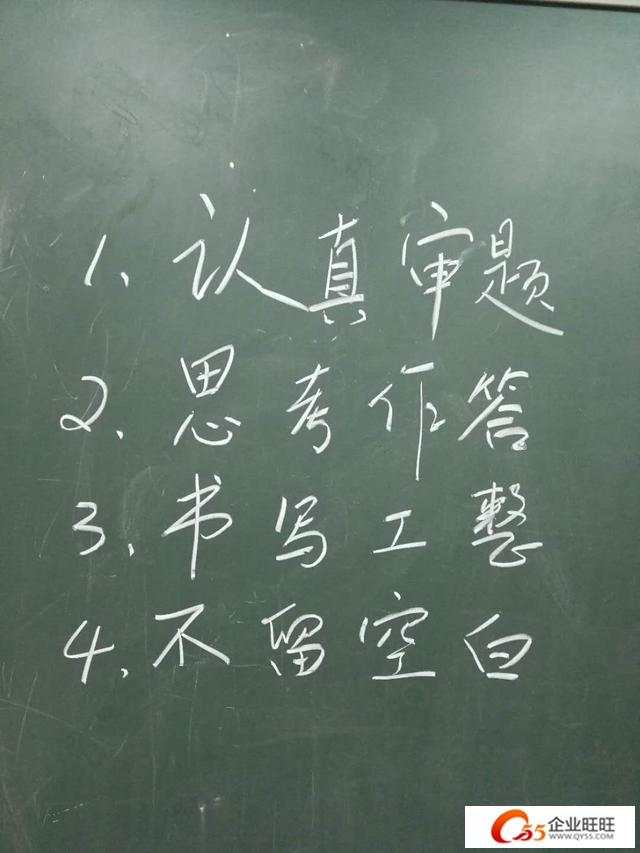 1、认真审题
2、思考作答
3、书写工整
4、不留空白
55企业旺旺
WWW.QY55.COM